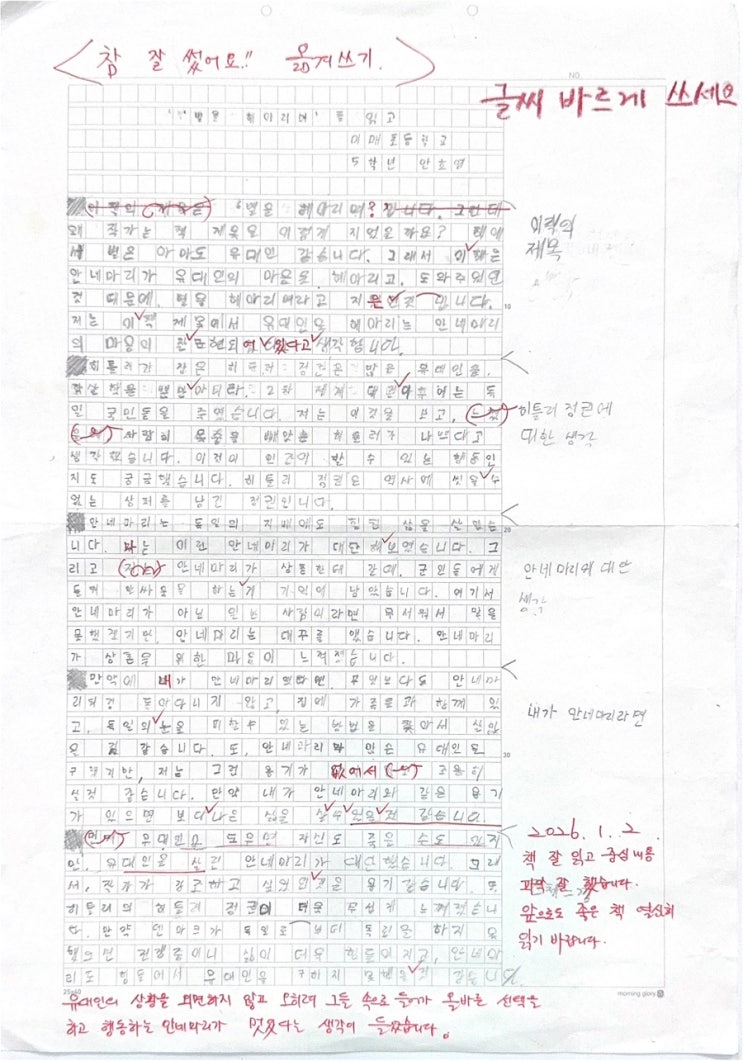 참 잘 썼어요!! 옮겨쓰기.
NO.
글씨 바르게 쓰세요
'별을 헤아리며' 를 읽고
이매초등학교
5학년 안효명
이 책의 제목은 '별을 헤아리며?입니다. 그런데
왜 작가는 책 제목을 이렇게 지었을까요?
이책의
제목
서 별은 아마도 유대인 같습니다. 그래서 이 책은
안네마리가 유대인의 마음을 헤아리고, 도와주었던
것 때문에, 별을 헤아리며라고 지은 것 입니다.
10
저는 이책 제목에서 유대인을 헤아리는 안네마리
의 마음이 잘 표현되었다고 생각합니다.
히틀러가 잡은 정권은 많은 유대인을
학살 했을 뿐만아니라, 2차 세계 대전이후에는 독
일 국민들을 죽였습니다. 저는 이것을 보고,
히틀러 정권에
대한 생각
사람의 목숨을 빼앗는 히틀러가 나쁘다고
생각했습니다. 이것이 인간이 할 수 있는 행동인
지도 궁금했습니다. 히틀러 정권은 역사에 씻을수
없는 상처를 남긴 정권입니다.
안네마리는 독일의 지배에도 힘든 삶을 살았습
20
니다. 나는 이런 안네마리가 대단해보였습니다. 그
리고 안네마리가 삼촌한테 갈때, 군인들에게
안네마리에 대한
생각
들켜 말싸움을 하는게 기억에 남았습니다. 여기서
안네마리가 아닌 일반 사람이라면 무서워서 말을
못했겠지만, 안네마리는 대꾸를 했습니다. 안네마리
가 삼촌을 위한 마음이 느껴졌습니다.
만약에 내가 안네마리였다면, 무엇보다도 안네마
리처럼 돌아다니지 않고, 집에 가족들과 함께 있
내가 안네마리라면
고, 독일의눈을 피할수 있는 방법을 찾아서 살았
을 것 같습니다. 또, 안네마리는 많은 유대인을
30
구했지만, 저는 그런 용기가 없어서 조용히
살것 같습니다. 만약 내가 안네마리와 같은 용기
가 있으면 보다나은 삶을 살수있을것 같습니다.
유대인을 도우면 자신도 죽을 수도 있지
만, 유대인을 살린 안네마리가 대단했습니다. 그래
서, 작가가 강조하고 싶었던것은 용기같습니다. 또
히틀러의 히틀러 정권이 더욱 무섭게 느껴졌습니
다. 만약 덴마크가 독일로부터 독립을 하지 못
했으면 전쟁중이니 삶이 더욱 힘들어지고, 안네마
리도 행동에서 유대인을 구하지 못했을것 같습니다.
2026.1.2
책 잘 읽고 중심내용
파악 잘 했습니다.
앞으로도 좋은 책 열심히
읽기 바랍니다.
25x40
morning glory
유대인의 상황을 외면하지 않고 오히려 그들 속으로 들어가 올바른 선택을
하고 행동하는 안네마리가 멋있다는 생각이 들었습니다.